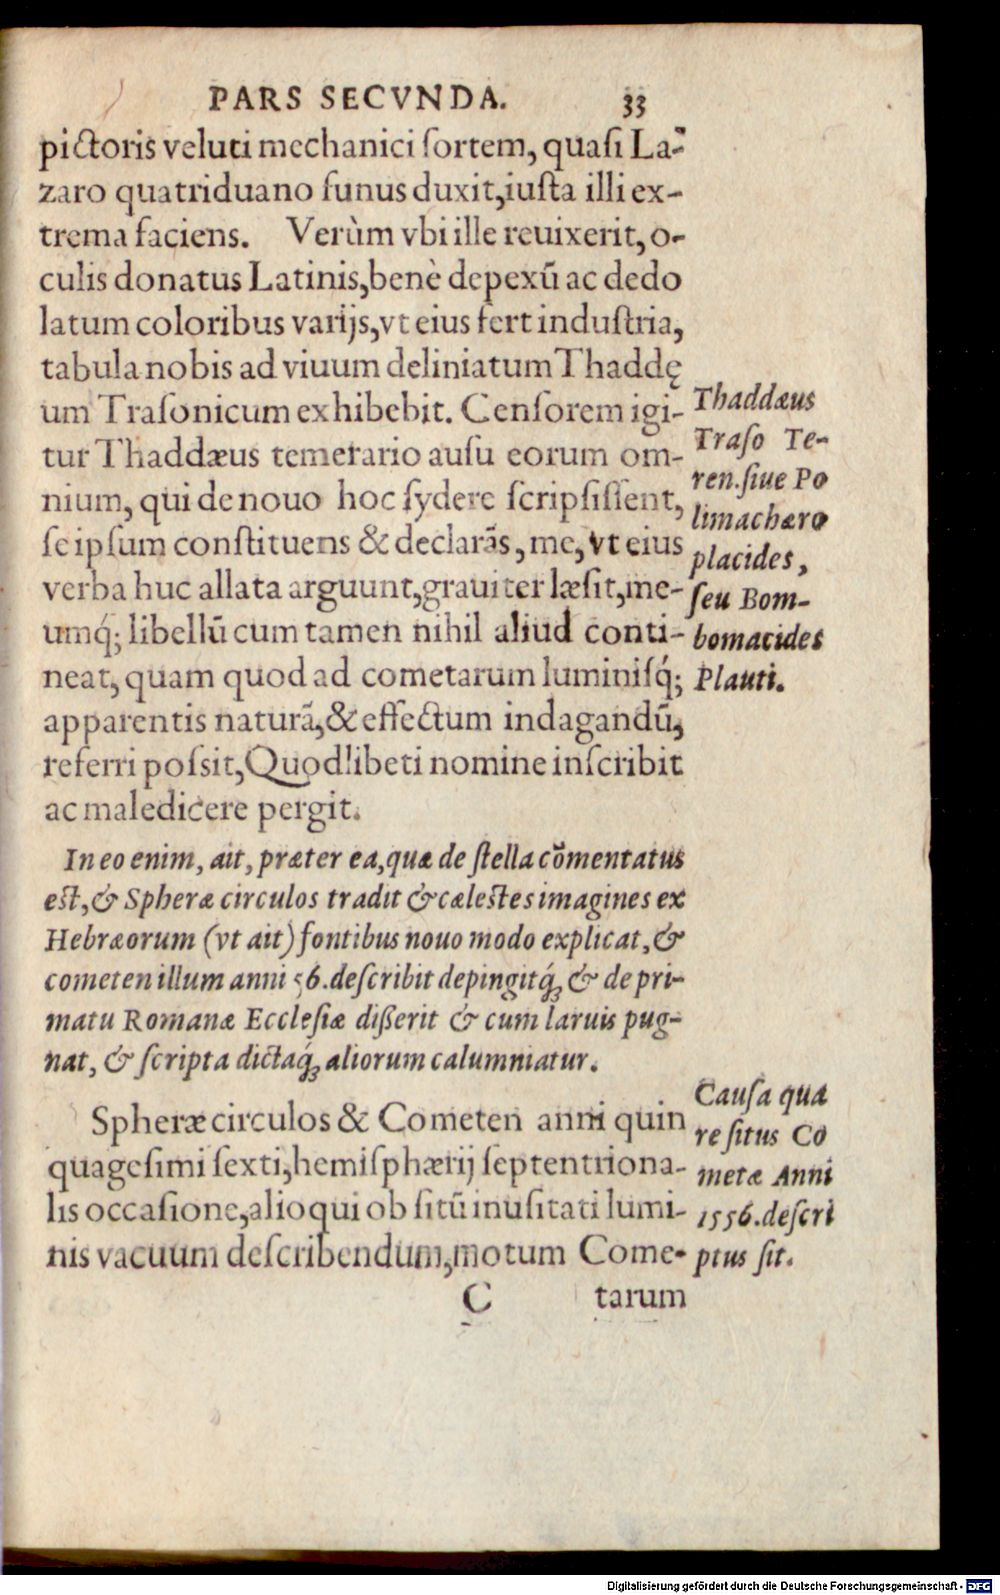 PARS SECVNDA. 33
pictoris veluti mechanici ſortem, quaſi La-
zaro quatriduano funus duxit, iuſta illi ex-
trema faciens. Verùm vbi ille reuixerit, o-
culis donatus Latinis, benè depexū ac dedo
latum coloribus varijs, vt eius fert induſtria,
tabula nobis ad viuum deliniatum Thaddę
um Traſonicum exhibebit. Cenſorem igi-
tur Thaddæus temerario auſu eorum om-
nium, qui de nouo hoc ſydere ſcripſiſſent,
ſeipſum conſtituens & declarās, me, vt eius
verba huc allata arguunt, grauiter læſit, me-
umq́; libellū cum tamen nihil aliud conti-
neat, quam quod ad cometarum luminiſq́;
apparentis naturā, & effectum indagandū,
referri poſsit, Quodlibeti nomine inſcribit
ac maledicere pergit.
Thaddæus
Traſo Te-
ren. ſiue Po
limachæro
placides,
ſeu Bom-
bomacides
Plauti.
In eo enim, ait, præter ea, quæ de ſtella cōmentatus
eſt, & Spheræ circulos tradit & cæleſtes imagines ex
Hebræorum (vt ait) fontibus nouo modo explicat, &
cometen illum anni 56. deſcribit depingitq́; & de pri-
matu Romanæ Eccleſiæ dißerit & cum laruis pug-
nat, & ſcripta dictaq́; aliorum calumniatur.
Spheræ circulos & Cometen anni quin
quageſimi ſexti, hemiſphærij ſeptentriona-
lis occaſione, alioqui ob ſitū inuſitati lumi-
nis vacuum deſcribendum, motum Come-
Cauſa qua
re ſitus Co
metæ Anni
1556. deſcri
ptus ſit.
C tarum
Digitalisierung gefördert durch die Deutsche Forschungsgemeinschaft - DFG